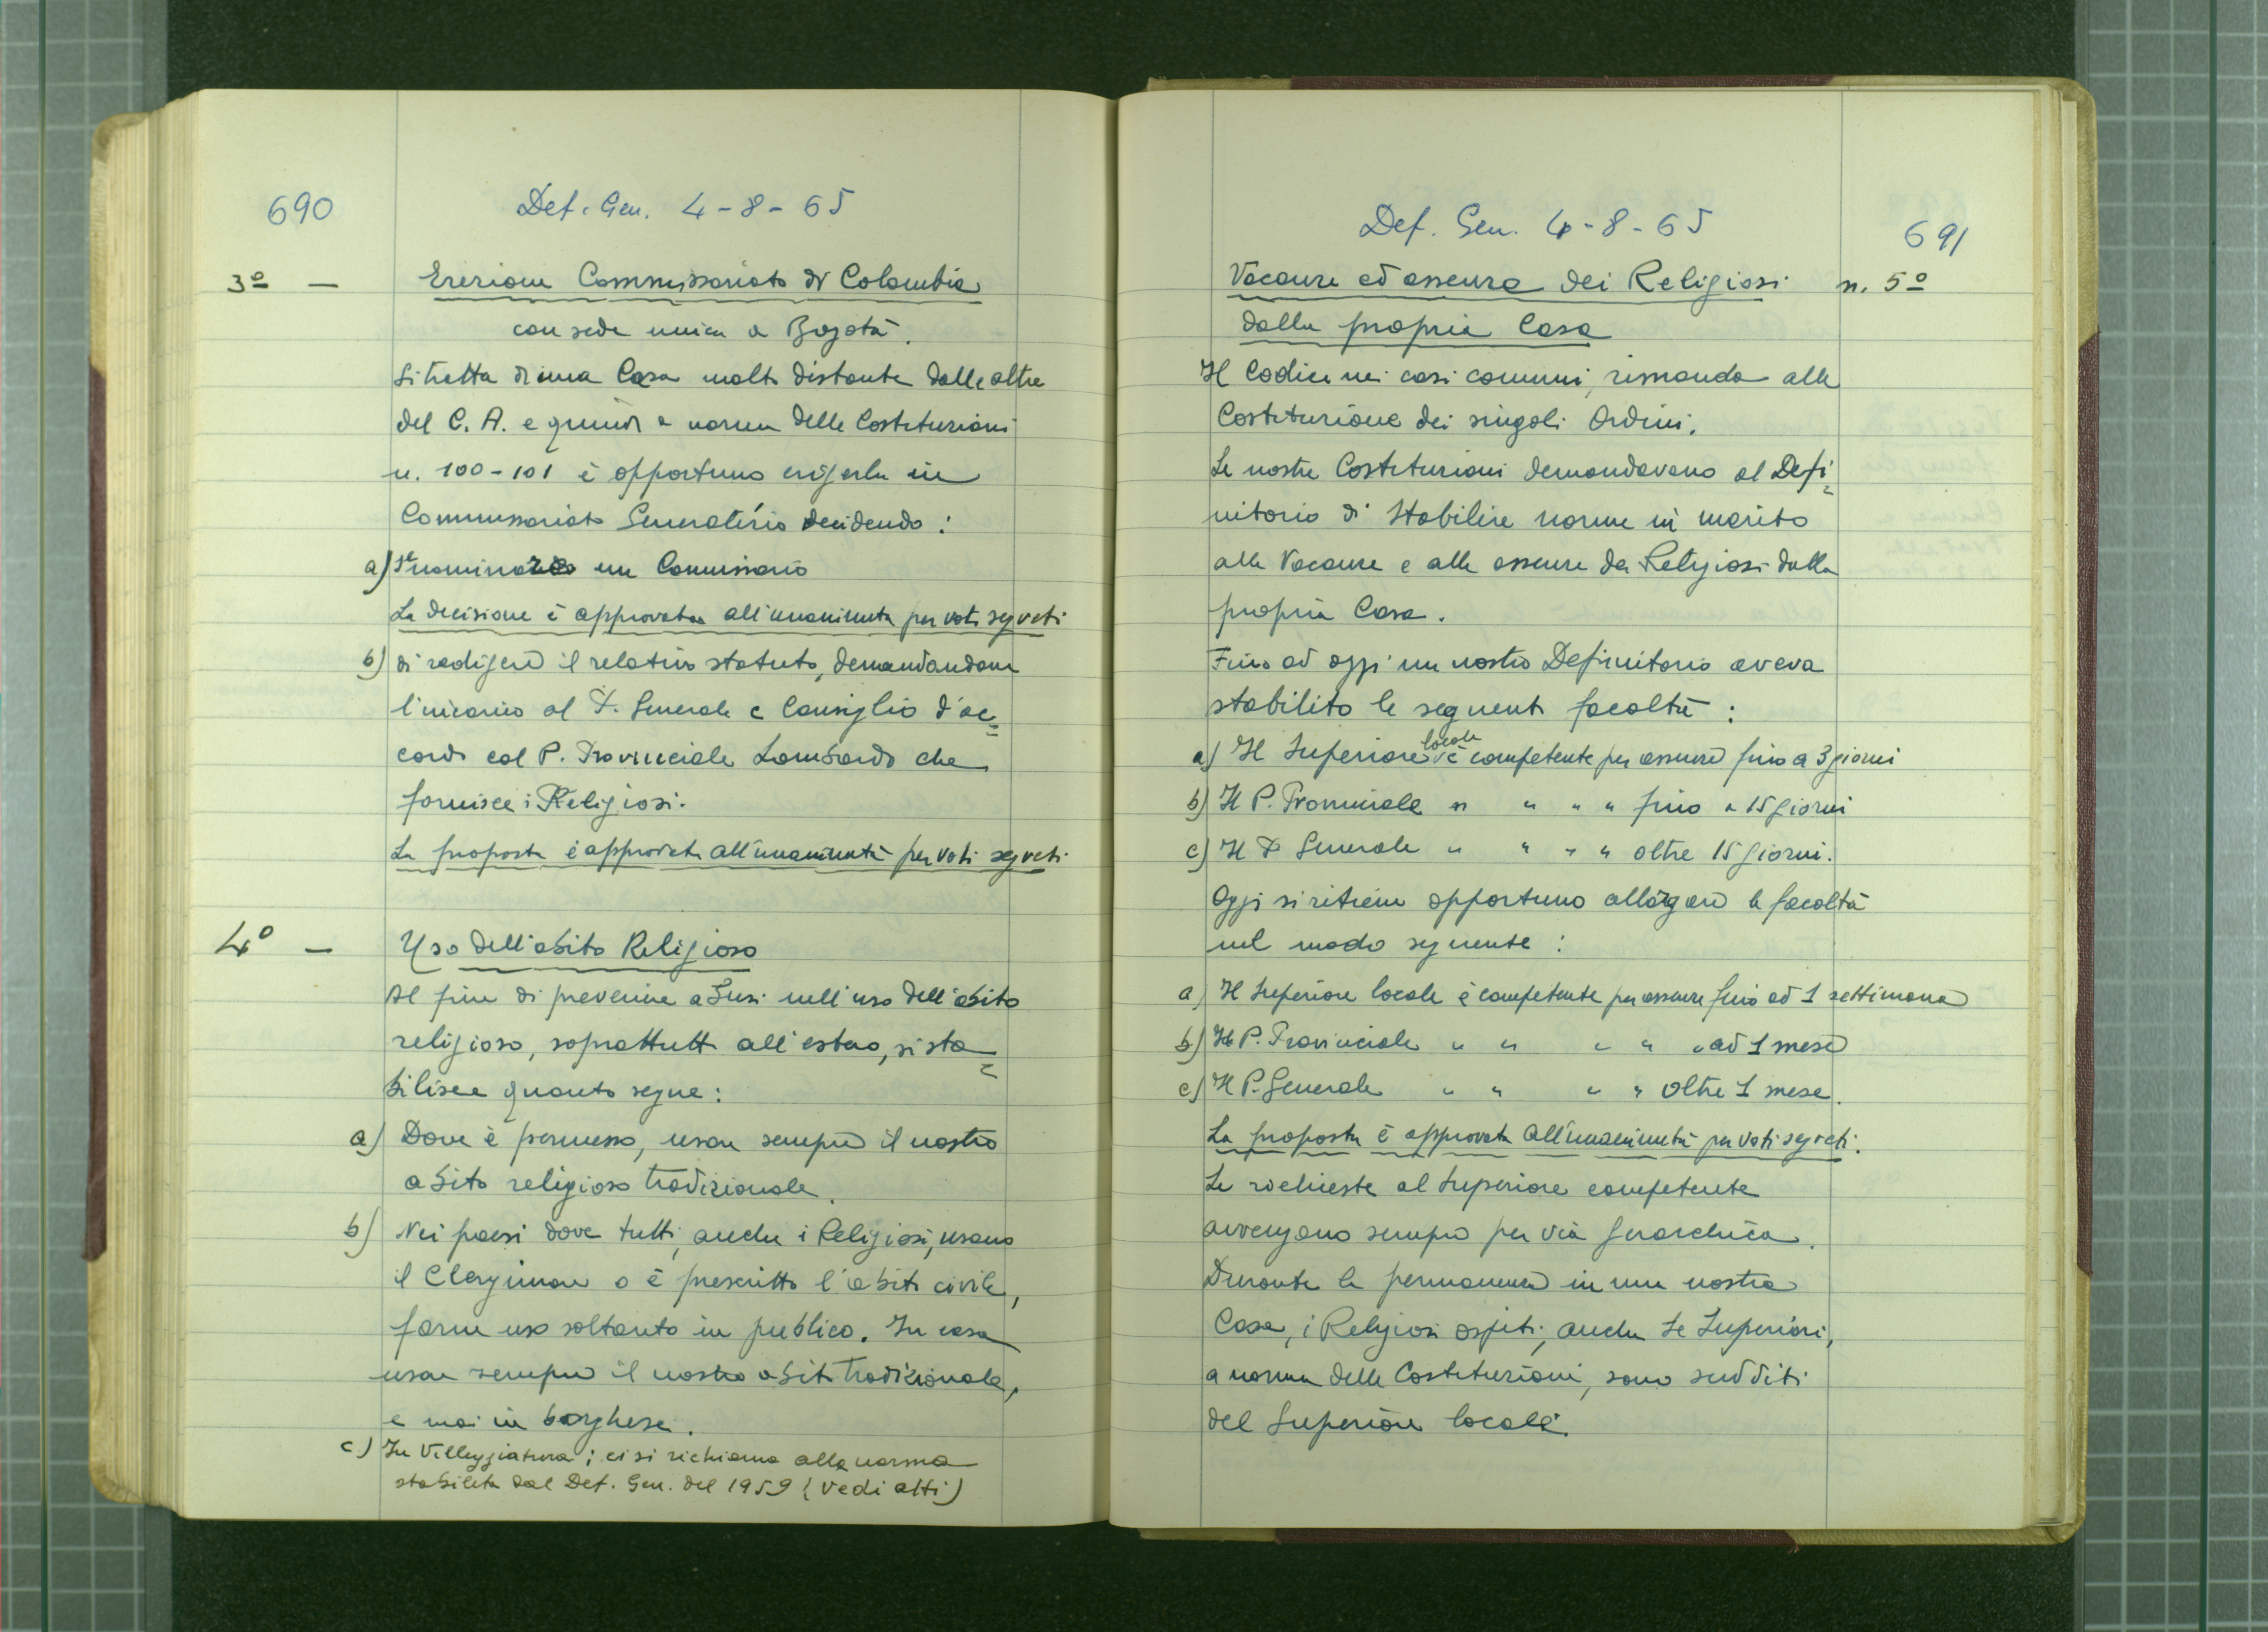 690
Def. Gen. 4-8-65
3º — Erezione Commissariato di Colombia
con sede unica a Bogotà.
Si tratta di una Casa molto distante dalle altre
del C. A. e quindi a norma delle Costituzioni
n. 100-101 è opportuno erigerla in
Commissariato Generalizio decidendo:
a) nominare un Commissario
La decisione è approvata all'unanimità per voti segreti
b) di redigere il relativo statuto, demandandone
l'incarico al P. Generale e Consiglio d'ac=
cordo col P. Provinciale Lombardo che
fornisce i Religiosi.
La proposta è approvata all'unanimità per voti segreti
4º — Uso dell'abito Religioso
Al fine di prevenire abusi nell'uso dell'abito
religioso, soprattutto all'estero, si sta=
bilisce quanto segue:
a) Dove è permesso, usare sempre il nostro
abito religioso tradizionale.
b) Nei paesi dove tutti, anche i Religiosi, usano
il Clergiman o è prescritto l'abito civile,
farne uso soltanto in pubblico. In casa
usare sempre il nostro abito tradizionale,
e mai in borghese.
c) In Villeggiatura; ci si richiama alla norma
stabilita dal Def. Gen. del 1959 (vedi atti)
Def. Gen. 4-8-65
691
Vacanze ed assenze dei Religiosi n. 5º
dalla propria Casa
Il Codice nei casi comuni, rimanda alle
Costituzione dei singoli Ordini.
Le nostre Costituzioni demandavano al Defi=
nitorio di stabilire norme in merito
alle Vacanze e alle assenze dei Religiosi dalla
propria Casa.
Fino ad oggi un nostro Definitorio aveva
stabilito le seguenti facoltà:
a) Il Superiore locale è competente per assenze fino a 3 giorni
b) Il P. Provinciale " " " " fino a 15 giorni
c) Il P. Generale " " " " oltre 15 giorni.
Oggi si ritiene opportuno allargare le facoltà
nel modo seguente:
a) Il Superiore locale è competente per assenze fino ad 1 settimana
b) Il P. Provinciale " " " " " ad 1 mese
c) Il P. Generale " " " " oltre 1 mese.
La proposta è approvata all'unanimità per voti segreti.
Le richieste al Superiore competente
avvengano sempre per via gerarchica.
Durante la permanenza in una nostra
Casa, i Religiosi ospiti, anche se Superiori,
a norma delle Costituzioni, sono sudditi
del Superiore locale.